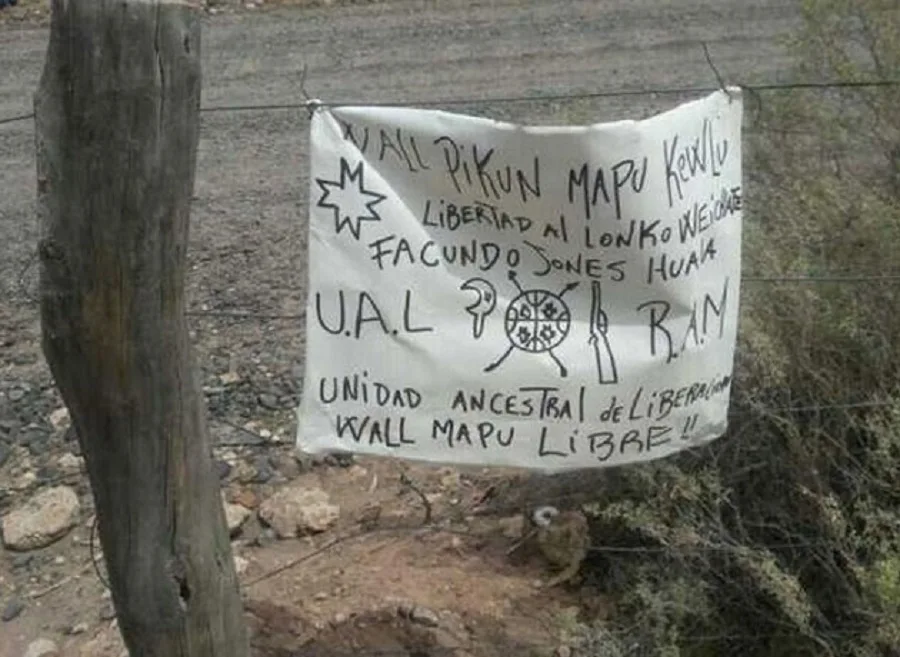 WALL PiKUN MAPU KeWLU
LiBERTAD Al LONKO WEiCHAFE
FACUNDO JONES HUALA
U.A.L R.A.M
UNiDAD ANCESTRAl de LiBERACiON
WALL MAPU LiBRE!!